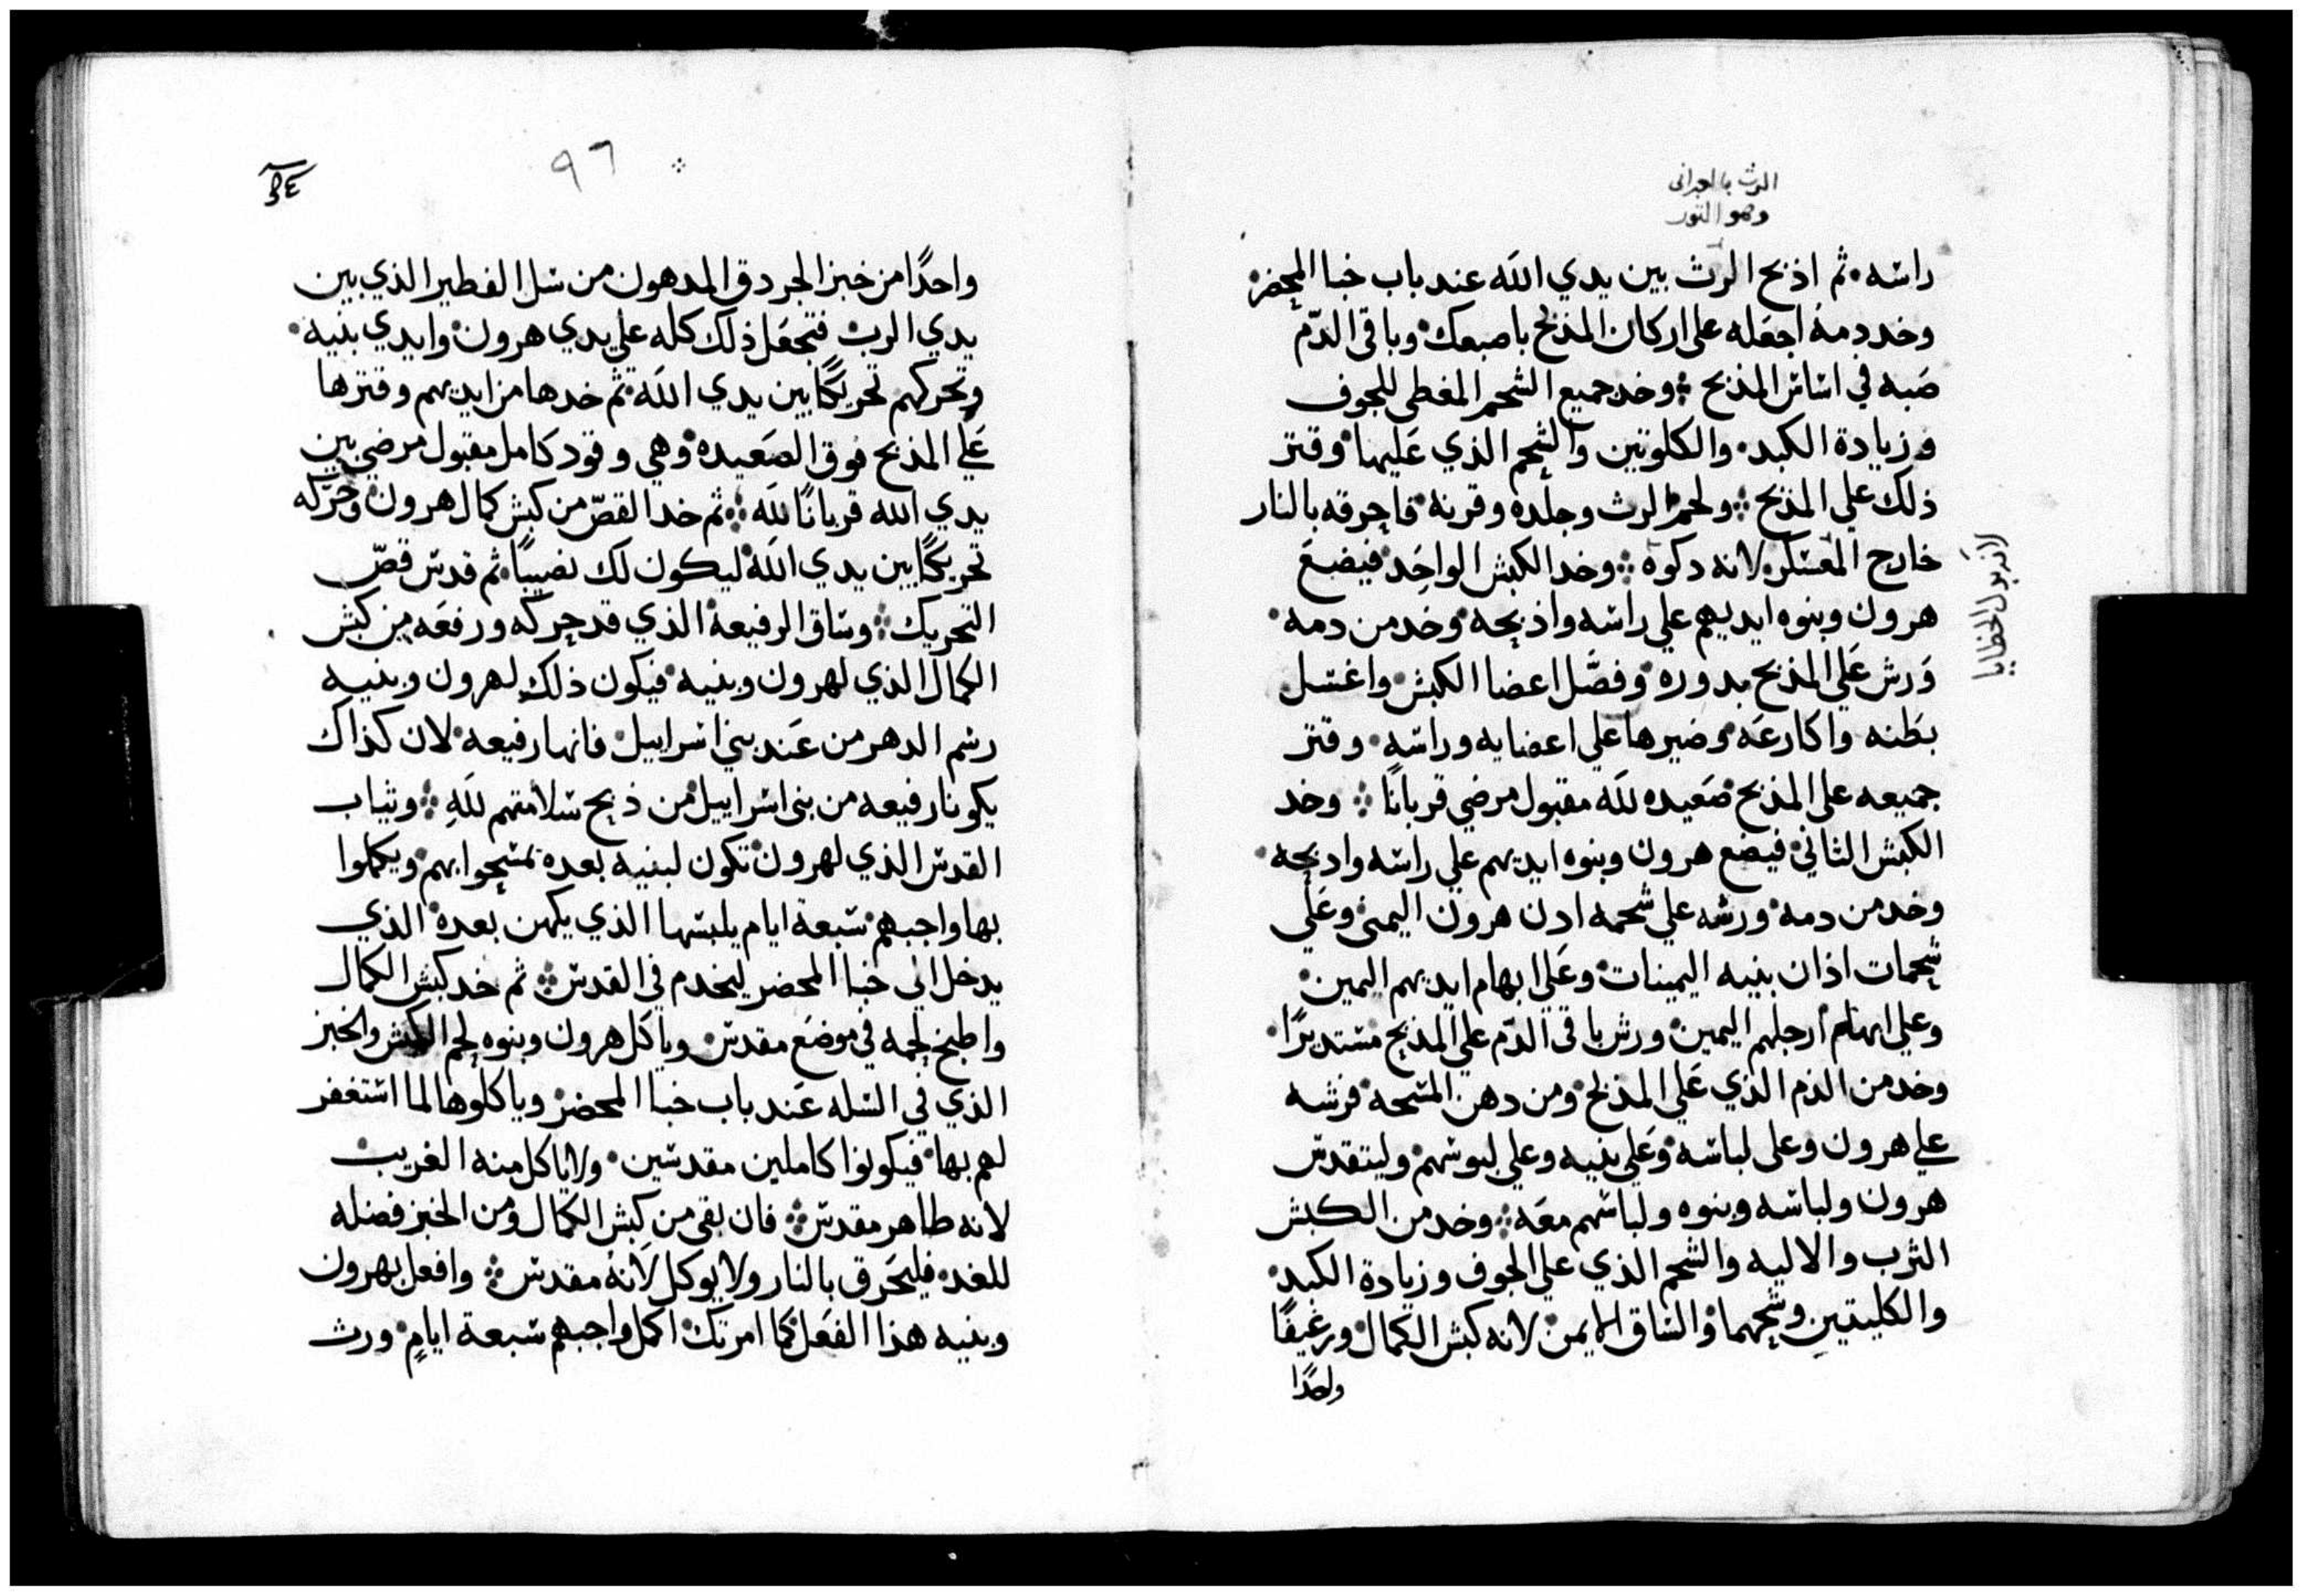 الرث بالعبرانى
وهو التور
راسه ثم اذبح الرث بين يدي الله عند باب خبا المحضر
وخد دمه اجعله على اركان المذبح باصبعك وباقى الدّم
صبه في اساس المذبح وخد جميع الشحم المغطى للجوف
وزيادة الكبد والكلوتين والشحم الذي عليها وقتر
ذلك علي المذبح ولحم الرث وجلده وقرنه فاحرقه بالنار
خارج المعسكر لانه دكوه وخد الكبش الواحد فيضع
لانه بول الخطايا
هرون وبنوه ايديهم علي راسه واذبحه وخد من دمه
ورش علي المذبح بدوره وفصّل اعضا الكبش واغسل
بطنه واكارعه وضيرها علي اعضايه وراسه وقتر
جميعه على المذبح صعيده لله مقبول مرضي قربانًا وخد
الكبش الثاني فيضع هرون وبنوه ايديهم علي راسه وادبحه
وخد من دمه ورشه علي شحمه ادن هرون اليمنى وعلي
شحمات اذان بنيه اليمينات وعلي ابهام ايديهم اليمين
وعلي ابهام ارجلهم اليمين ورش باقي الدّم علي المذبح مستديرًا
وخد من الدم الذي علي المذبح ومن دهن المسحه فرشه
علي هرون وعلى لباسه وعلي بنيه وعلي لبوسهم وليتقدس
هرون ولباسه وبنوه ولباسهم معه وخد من الكبش
الثرب والاليه والشحم الذي علي الجوف وزيادة الكبد
والكليتين وشحمهما والساق الايمن لانه كبش الكمال ورغيفًا
واحدًا
٩٦
واحدًا من خبز الجردق المدهون من سل الفطير الذي بين
يدي الرب فتجعل ذلك كله علي يدي هرون وايدي بنيه
وتحركهم تحريكًا بين يدي الله ثم خدها من ايديهم وقترها
علي المذبح فوق الصعيده وهي وقود كامل مقبول مرضي بين
يدي الله قربانًا لله ثم خد القصّ من كبش كمال هرون وحرّكه
تحريكًا بين يدي الله ليكون لك نصيبًا ثم قدس قصّ
التحريك وساق الرفيعه الذي قد حركه ورفعه من كبش
الكمال الذي لهرون وبنيه فيكون ذلك لهرون وبنيه
رسم الدهر من عند بني اسراييل فانها رفيعه لان كذاك
يكونا رفيعه من بنى اسراييل من ذبح سلامتهم لله وتياب
القدس الذي لهرون تكون لبنيه بعده يمسحوا بهم ويكملوا
بها واجبهم سبعة ايام يلبسها الذي يكهن بعده الذي
يدخل الى خبا المحضر ليخدم في القدس ثم خد كبش الكمال
واطبخ لحمه في موضع مقدس وياكل هرون وبنوه لحم الكبش والخبز
الذي في السله عند باب خبا المحضر وياكلوها لما استغفر
لهم بها فيكونوا كاملين مقدسين ولا ياكل منه الغريب
لانه طاهر مقدس فان بقى من كبش الكمال ومن الخبز فضله
للغد فليحرق بالنار ولا يوكل لانه مقدس وافعل بهرون
وبنيه هذا الفعل كما امرتك اكمل واجبهم سبعة ايام ورث